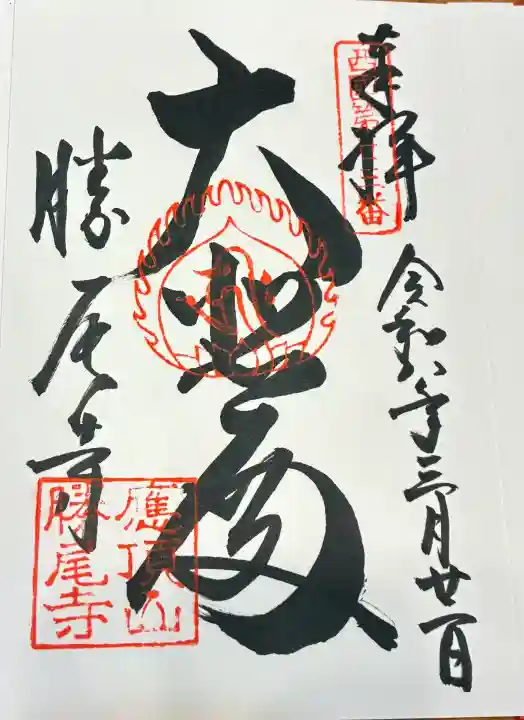 奉拝
西國第廿三番
令和八年三月廿一日
大悲殿
勝尾寺
應頂山
勝尾寺